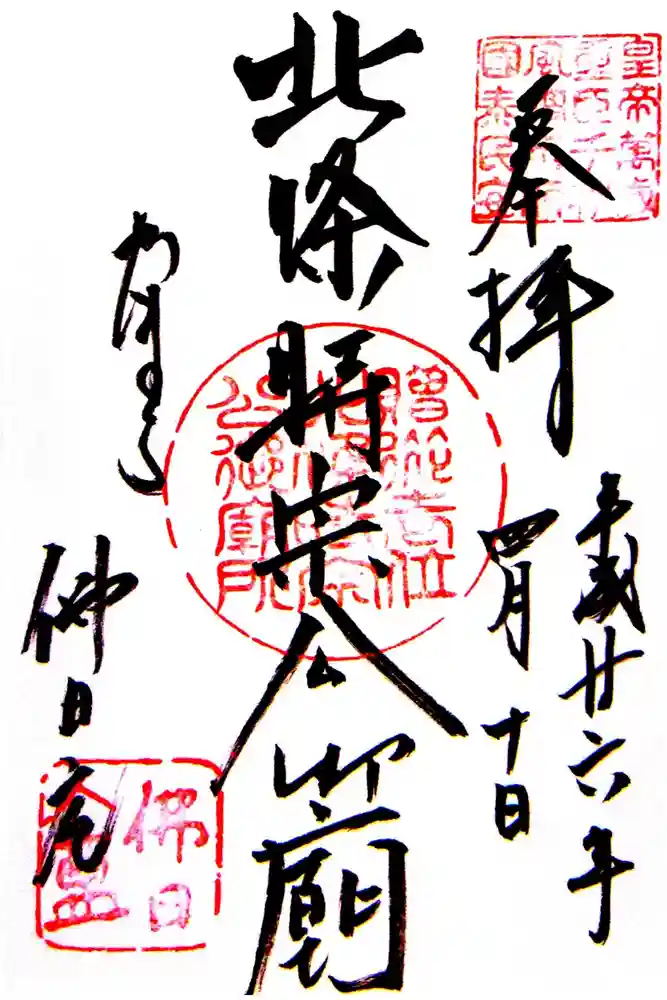 奉拝
平成廿六年
四月十日
北條時宗公御廟
かまくら
佛日庵
皇帝萬歳
國泰民安
贈從一位
北條時宗
公御廟所
佛日